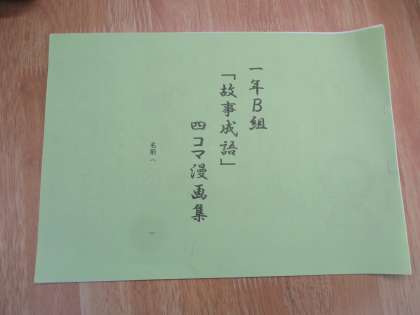 一年B組
「故事成語」
四コマ漫画集
名前（　　　）